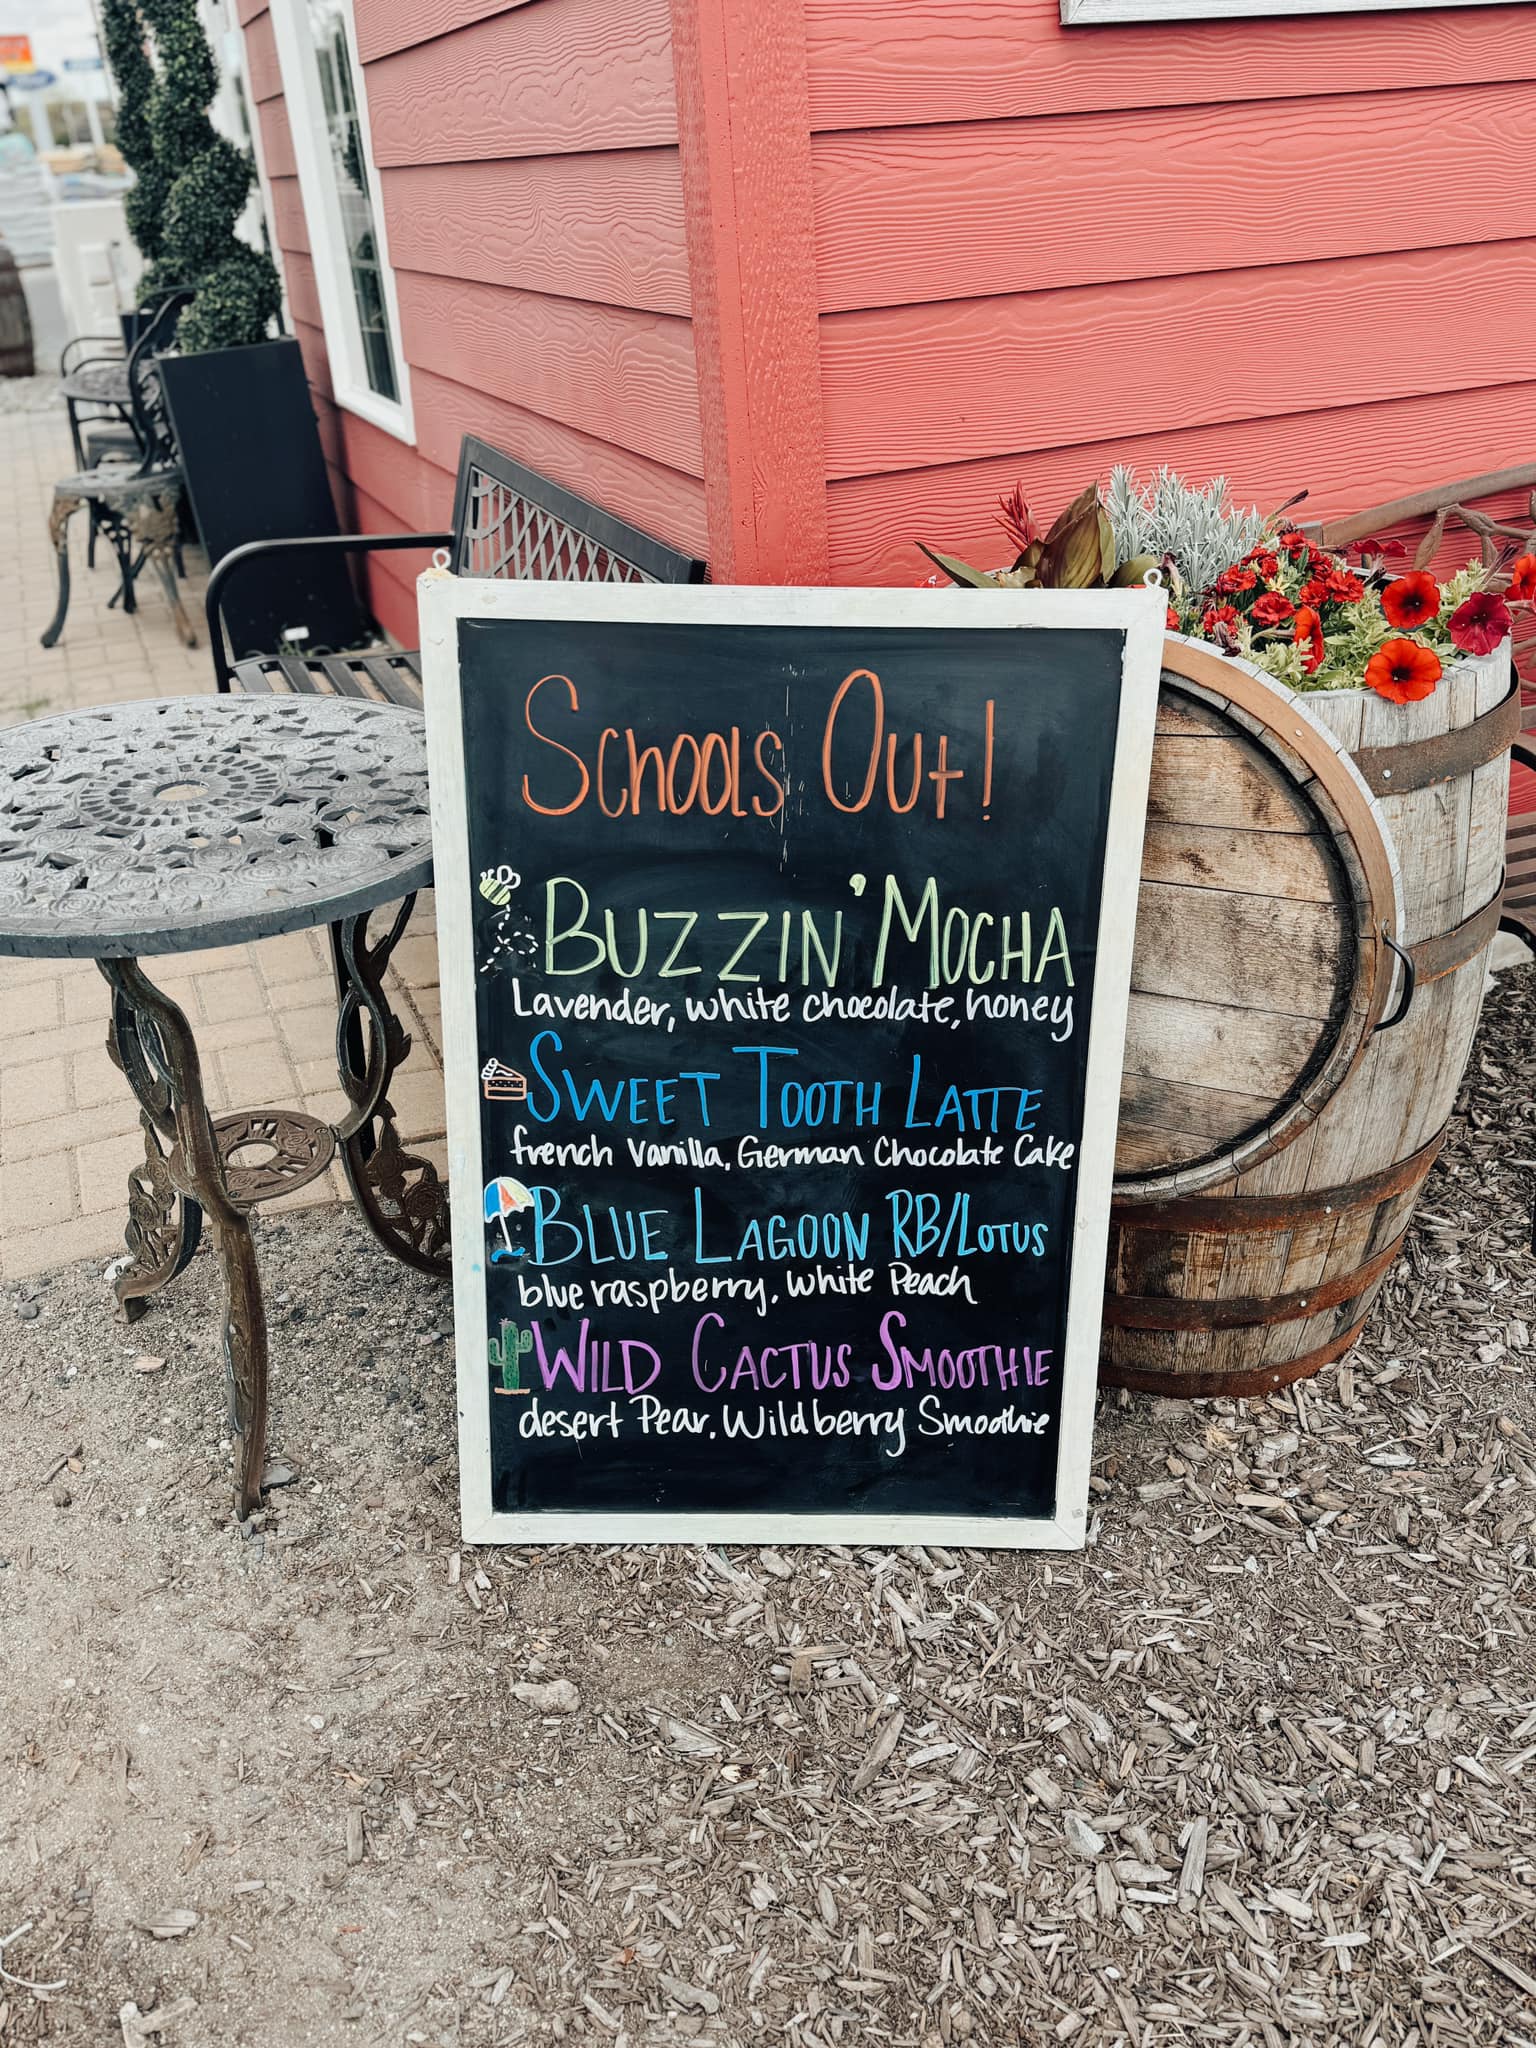 Schools Out!
Buzzin' Mocha
Lavender, white chocolate, honey
Sweet Tooth Latte
french Vanilla, German Chocolate Cake
Blue Lagoon RB/Lotus
blue raspberry, White Peach
Wild Cactus Smoothie
desert Pear, Wildberry Smoothie